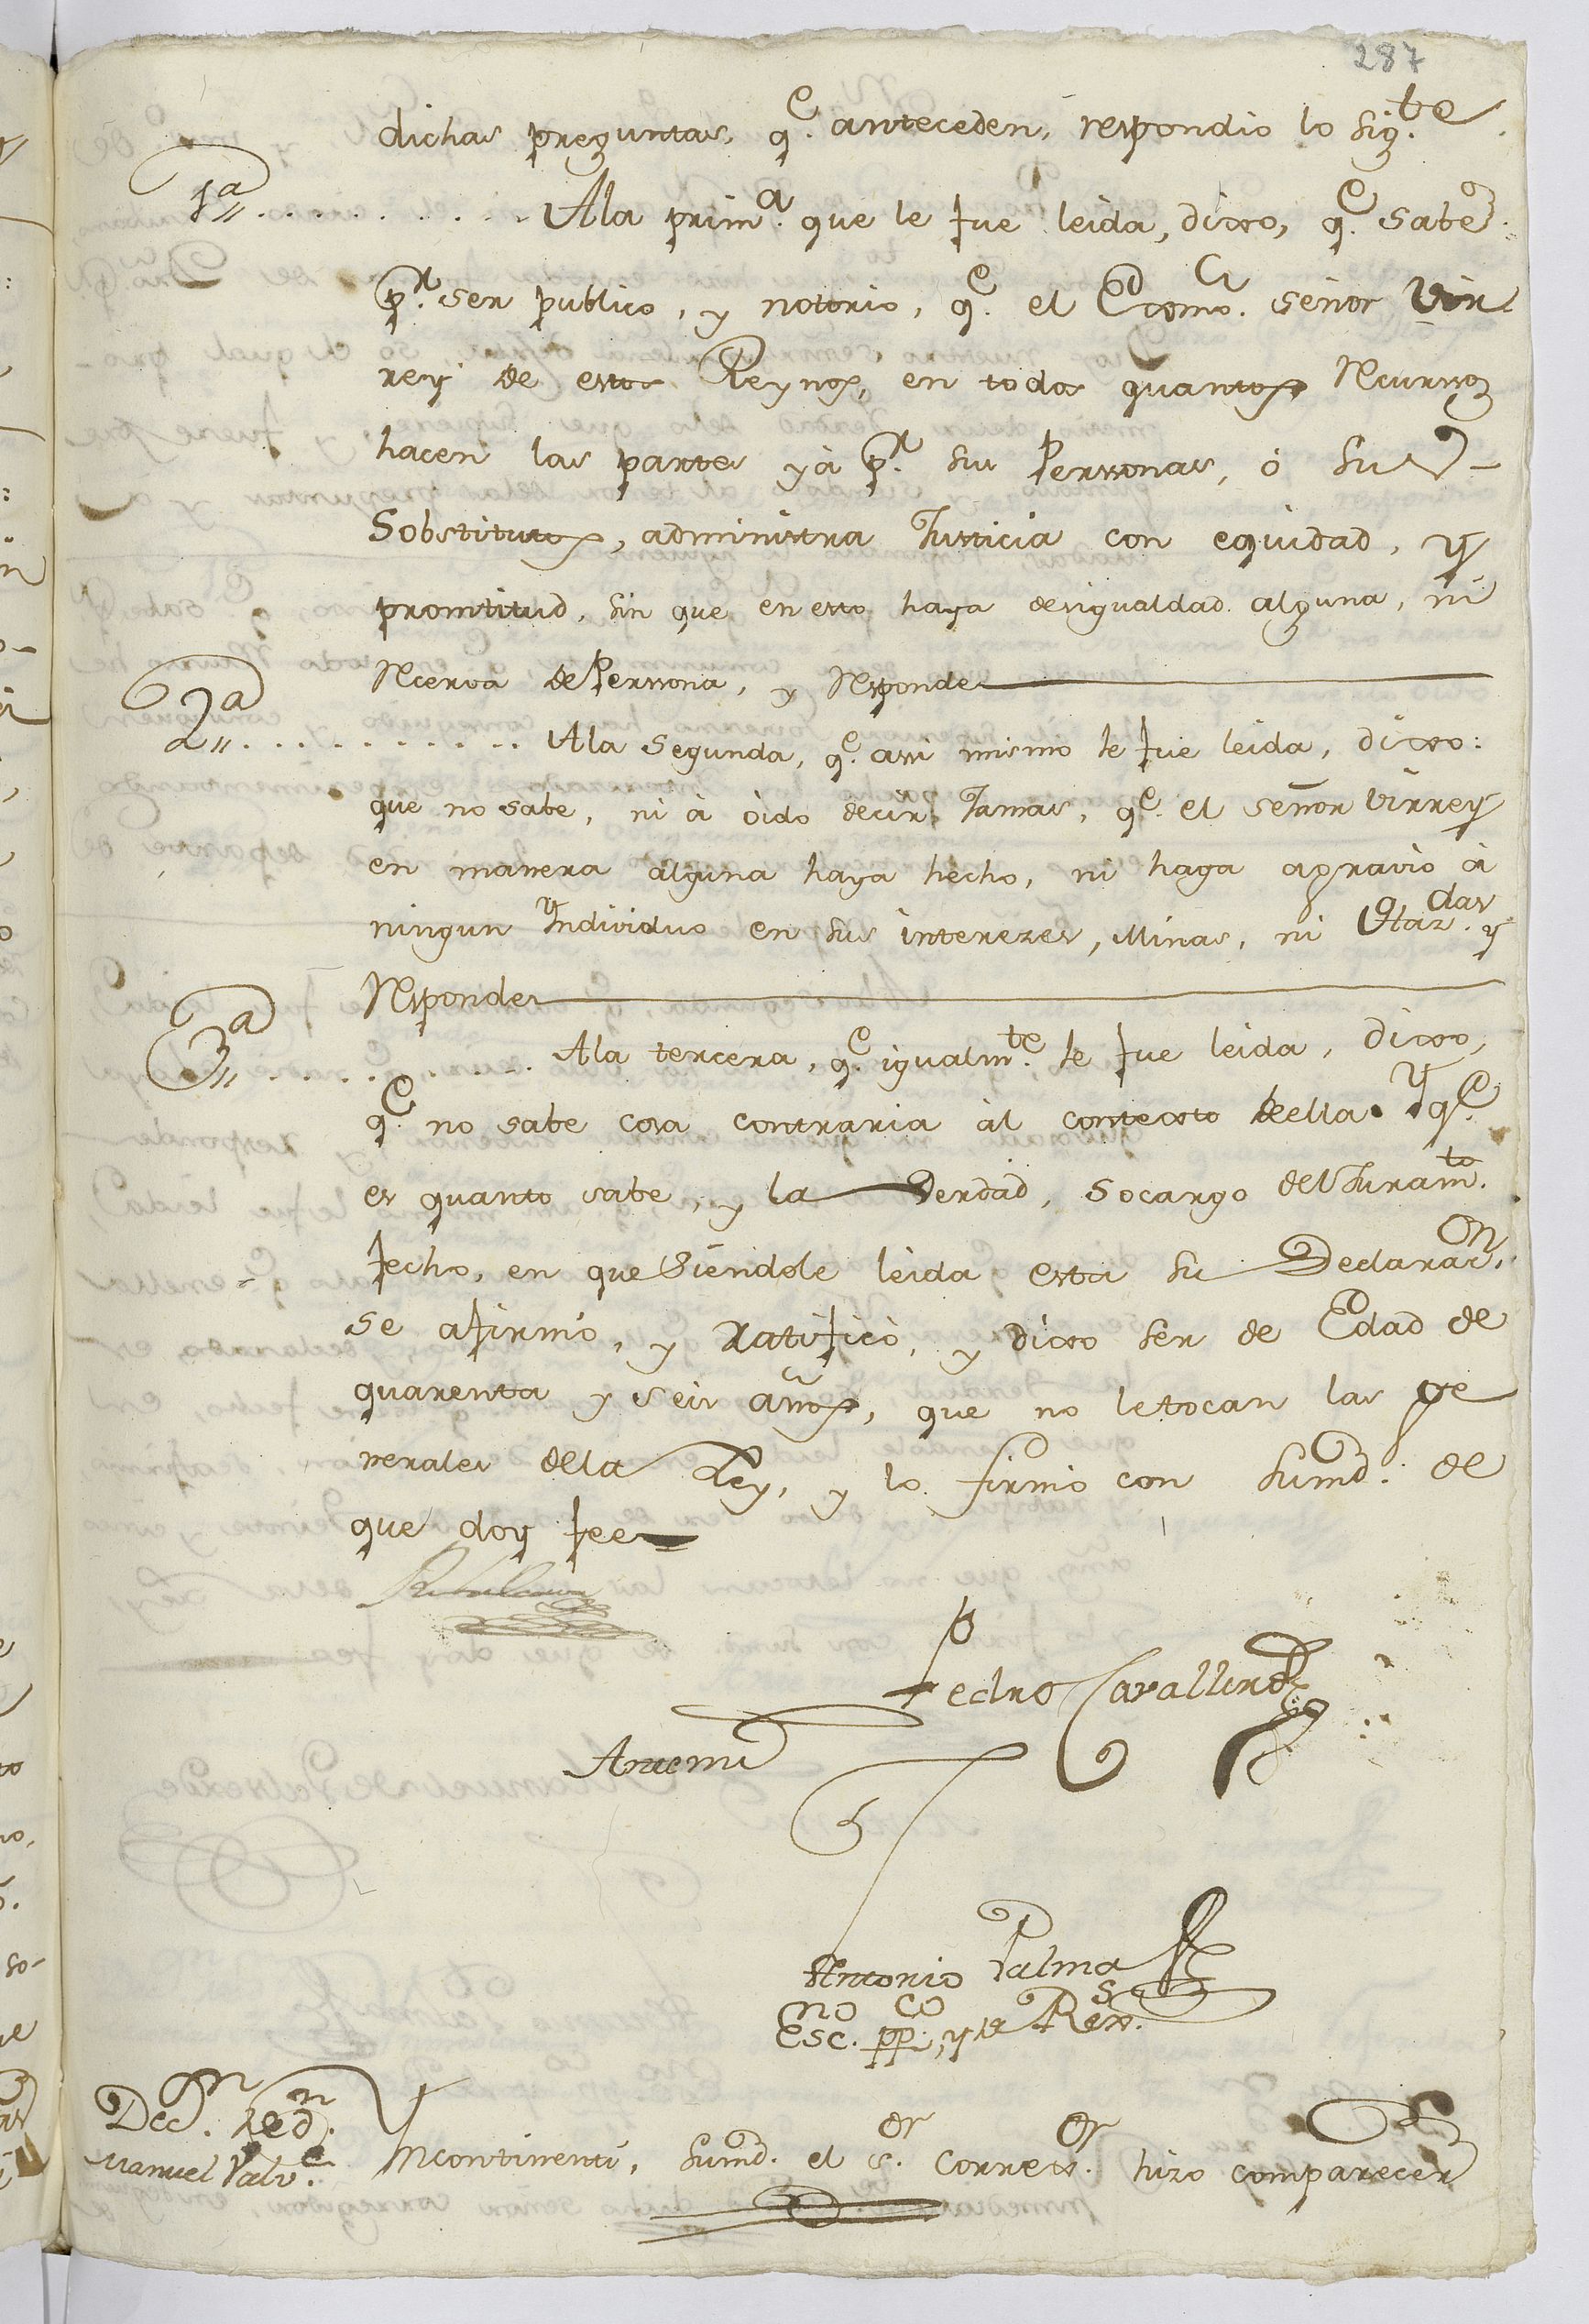 287
dichas preguntas, q.e anteceden, respondio lo sig.te
1.a Ala prim.a que le fue leida, dixo, q.e sabe
p.r ser publico, y notorio, q.e el Excmo. señor Vir
rey de estos Reynos, en todos quantos recursos
hacen las partes yà p.r sus Perssonas, ó sus
Sobstitutos, administra Justicia con equidad, y
promtitud, sin que en esto haya desigualdad alguna, ni
recerva de Perssona, y responde
2.a Ala segunda, q.e assi mismo le fue leida, dixo:
que no sabe, ni à oido decir Jamas, q.e el señor Virrey
en manera alguna haya hecho, ni haga agravio à
ningun Yndividuo en sus interezes, Minas, ni Haz.das y
responde
3.a Ala tercera, q.e igualm.te le fue leida, dixo,
q.e no sabe cosa contraria àl contexto deella. Y q.e
es quanto sabe, y la Verdad, socargo del Juram.to
fecho, en que siendole leida esta su Declarac.on
se afirmó, y ratificó, y dixo ser de Edad de
quarenta y seis años, que no letocan las ge
nerales dela Ley, y lo firmó con sumd. de
que doy fee
Pedro Cavallero
Antemi
Antonio Palma
Esc.no pp.co, y de Rex.s
Dec.n de d.n
Manuel Valv.e
Incontinenti, sumd. el s.or Correx.or hizo comparecer